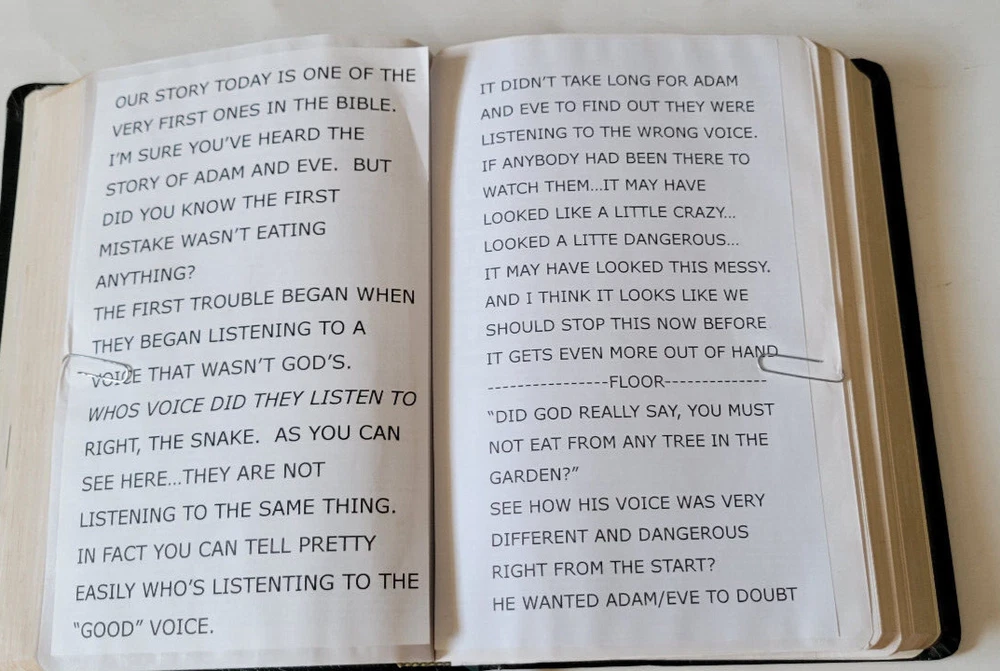 OUR STORY TODAY IS ONE OF THE
VERY FIRST ONES IN THE BIBLE.
I'M SURE YOU'VE HEARD THE
STORY OF ADAM AND EVE.  BUT
DID YOU KNOW THE FIRST
MISTAKE WASN'T EATING
ANYTHING?
THE FIRST TROUBLE BEGAN WHEN
THEY BEGAN LISTENING TO A
VOICE THAT WASN'T GOD'S.
WHOS VOICE DID THEY LISTEN TO
RIGHT, THE SNAKE.  AS YOU CAN
SEE HERE…THEY ARE NOT
LISTENING TO THE SAME THING.
IN FACT YOU CAN TELL PRETTY
EASILY WHO'S LISTENTING TO THE
"GOOD" VOICE.
IT DIDN'T TAKE LONG FOR ADAM
AND EVE TO FIND OUT THEY WERE
LISTENING TO THE WRONG VOICE.
IF ANYBODY HAD BEEN THERE TO
WATCH THEM…IT MAY HAVE
LOOKED LIKE A LITTLE CRAZY…
LOOKED A LITTE DANGEROUS…
IT MAY HAVE LOOKED THIS MESSY.
AND I THINK IT LOOKS LIKE WE
SHOULD STOP THIS NOW BEFORE
IT GETS EVEN MORE OUT OF HAND
----------------FLOOR--------------
"DID GOD REALLY SAY, YOU MUST
NOT EAT FROM ANY TREE IN THE
GARDEN?"
SEE HOW HIS VOICE WAS VERY
DIFFERENT AND DANGEROUS
RIGHT FROM THE START?
HE WANTED ADAM/EVE TO DOUBT